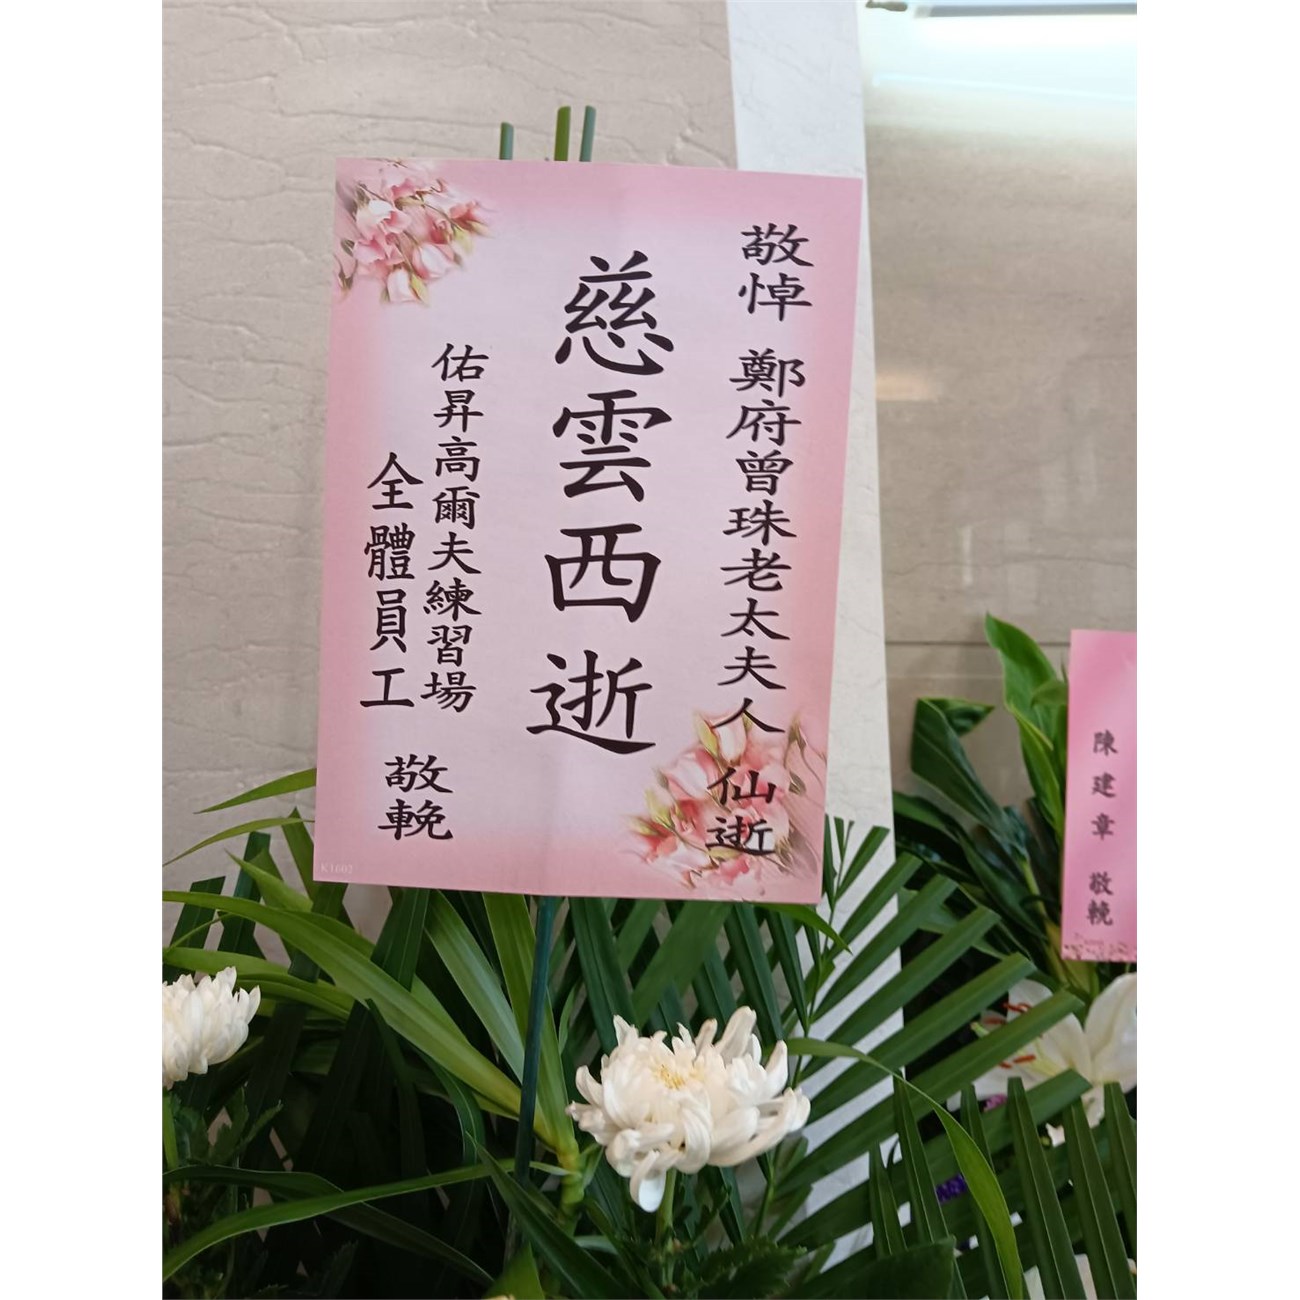 敬悼 鄭府曾珠老太夫人 仙逝
慈雲西逝
佑昇高爾夫練習場
全體員工
敬輓
K1602
陳建章 敬輓